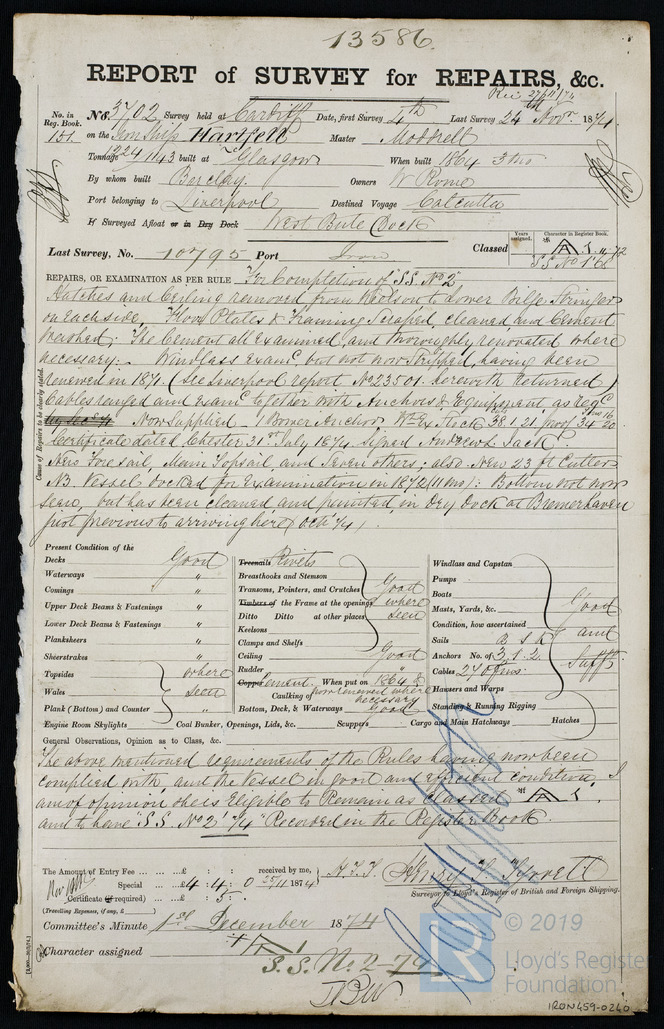 13586.
REPORT of SURVEY for REPAIRS, &c.
Rec 27/11/74
No. in Reg. Book. 151 No. 3702 Survey held at Cardiff Date, first Survey 4th Last Survey 24th Novr. 1874
on the Iron Ship Hartfell Master Moddrell
Tonnage 1224/1143 built at Glasgow When built 1864 3 mo
By whom built Barclay. Owners W Rome
Port belonging to Liverpool Destined Voyage Calcutta
If Surveyed Afloat or in Dry Dock West Bute Dock
Years assigned. Character in Register Book.
Last Survey, No. 10795 Port Iron Classed A 1 11,72
SS No 1 68
REPAIRS, OR EXAMINATION AS PER RULE For Completion of "S.S. No 2"
Cause of Repairs to be clearly stated.
Hatches and Ceiling removed from Keelson to Lower Bilge Stringer
on each side, Floor Plates & Framing Scraped, cleaned and Cement
Washed; The Cement all Examined, and thoroughly renovated where
necessary:- Windlass Examd. but not now Stripped, having been
renewed in 1871. (See Liverpool report No 23501. herewith returned)
Cables ranged and Examd together with Anchors & Equipment, as Reqd
Now Supplied 1 Bower Anchor Wt Ex Stock 38.1.21 proof 34 20
Certificate dated Chester 31st July 1874 Signed Andrew Jack
New Foresail, Main Topsail, and Seven others; also New 23 ft Cutter
N3. Vessel docked for Examination in 1872 (11 mo): Bottom not now
seen, but has been cleaned and painted in Dry Dock at Bremerhaven
just previous to arriving here (Oct 74)
Present Condition of the
Decks Good
Waterways "
Comings "
Upper Deck Beams & Fastenings "
Lower Deck Beams & Fastenings "
Planksheers "
Sheerstrakes "
Topsides where
Wales seen
Plank (Bottom) and Counter
Engine Room Skylights
Treenails Rivets
Breasthooks and Stemson
Transoms, Pointers, and Crutches Good
Timbers of the Frame at the openings where
Ditto Ditto at other places seen
Keelsons
Clamps and Shelfs
Ceiling Good
Rudder "
Copper Cement. When put on 1864 &
Caulking of now renewed where necessary
Bottom, Deck, & Waterways Good
Coal Bunker, Openings, Lids, &c. Scuppers Cargo and Main Hatchways Hatches
Windlass and Capstan
Pumps
Boats
Masts, Yards, &c. Good
Condition, how ascertained and
Sails a s k
Anchors No. of 3.1.2. Sufft.
Cables 270 fms
Hawsers and Warps
Standing & Running Rigging
General Observations, Opinion as to Class, &c.
The above mentioned requirements of the Rules having now been
complied with, and the Vessel in good and efficient condition, I
am of opinion she is Eligible to Remain as Classed A 1,
and to have "S.S. No 2' 74" Recorded in the Register Book.
The Amount of Entry Fee ... £ : : received by me, H.F.T.
Special ... £4 : 4 : 0 25/11 1874
Certificate (if required) ... £ : 5 :
(Travelling Expenses, if any, £ )
Surveyor to Lloyd's Register of British and Foreign Shipping.
Committee's Minute 1st December 1874
Character assigned A 1
S.S. No. 2-74
© 2019
Lloyd's Register
Foundation
IRON459-0240